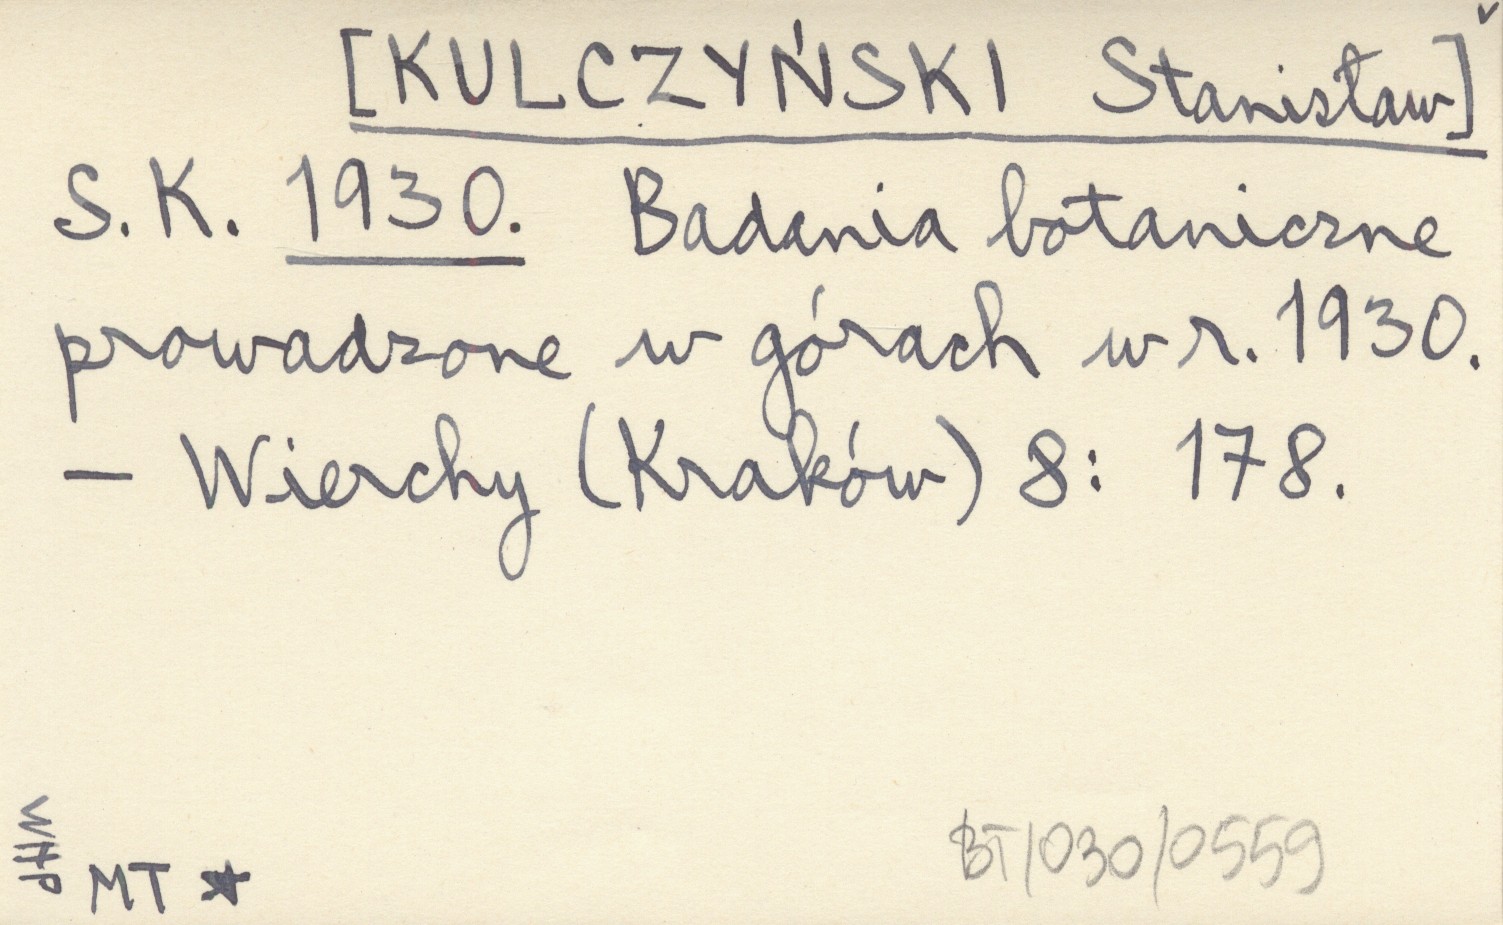 [KULCZYŃSKI Stanisław]
S. K. 1930. Badania botaniczne
prowadzone w górach w r. 1930.
— Wierchy (Kraków) 8: 178.
WHP
MT ★
BT/030/0559